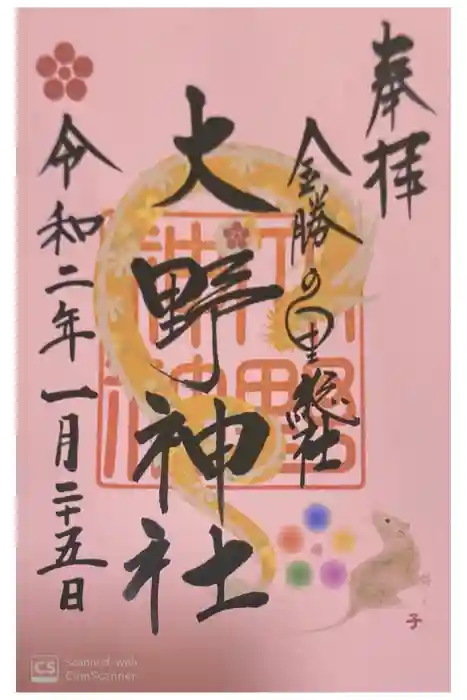 奉拝
金勝の里総社
大野神社
令和二年一月二十五日
子
CS Scanned with
CamScanner